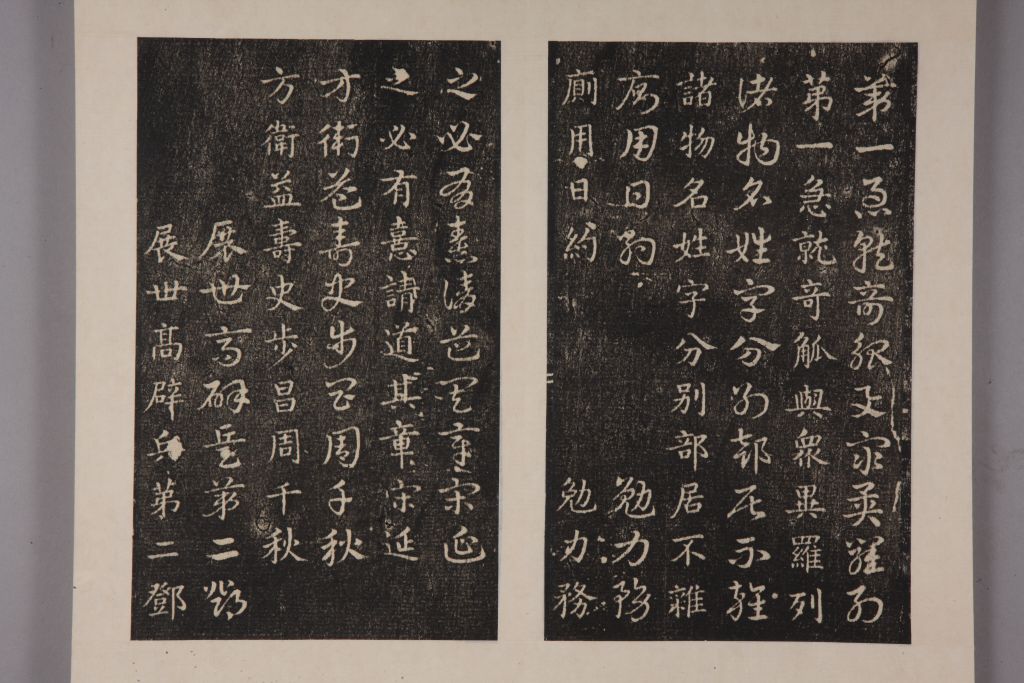 第一急就奇觚與衆異羅列
第一急就奇觚與衆異羅列
諸物名姓字分别部居不雜
諸物名姓字分别部居不雜
廁用日約 勉力務
廁用日約 勉力務
之必有憙請道其章宋延
之必有憙請道其章宋延
方衛益壽史步昌周千秋
方衛益壽史步昌周千秋
展世高辟兵第二鄧
展世髙辟兵第二鄧